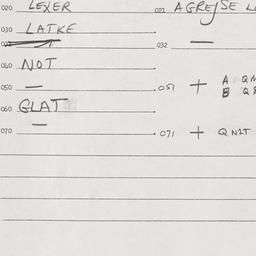 020 LEXER 021 AGRE
030 LATKE
032
040 NOT
050 051 + A
B
060 GLAT
070 071 + QNIT